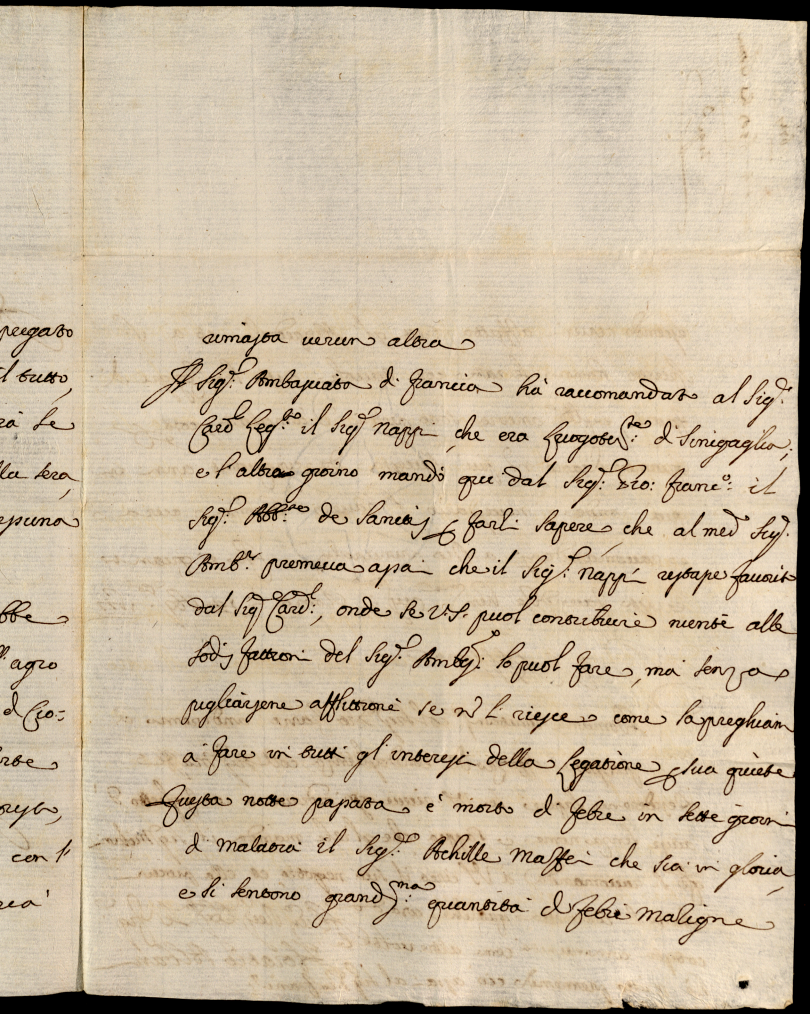 pregato
il tutto,
rà se
lla sera,
obbe
ll'agro
con l'
rimasta verun altra
Il Sig.r Ambasciata di francia hà raccomandato al Sig.r
Card.l Leg.to il Sig.r Nappi che era Luogoten.te di Sinigaglia,
e l'altro giorno mandò qui dal Sig.r Gio: Franc.o: il
Sig.r Abb.te de Sanctis p farli sapere, che al med.o Sig.r
Amb.r premeva assai che il Sig.r Nappi restasse favorito
dal Sig.r Card.l, onde se V.S. puol contribuire niente alle
sodisfattioni del Sig.r Amb.r lo puol fare, mà senza
pigliarsene afflittione se n l. riesce come la preghiam
à fare in tutti gl'interessi della Legatione p sua quiete
Questa notte passata è morto di febre in sette giorni
di malatia il Sig.r Achille Maffei che sia in gloria,
e si sentono grandis.ma quantità di febri maligne